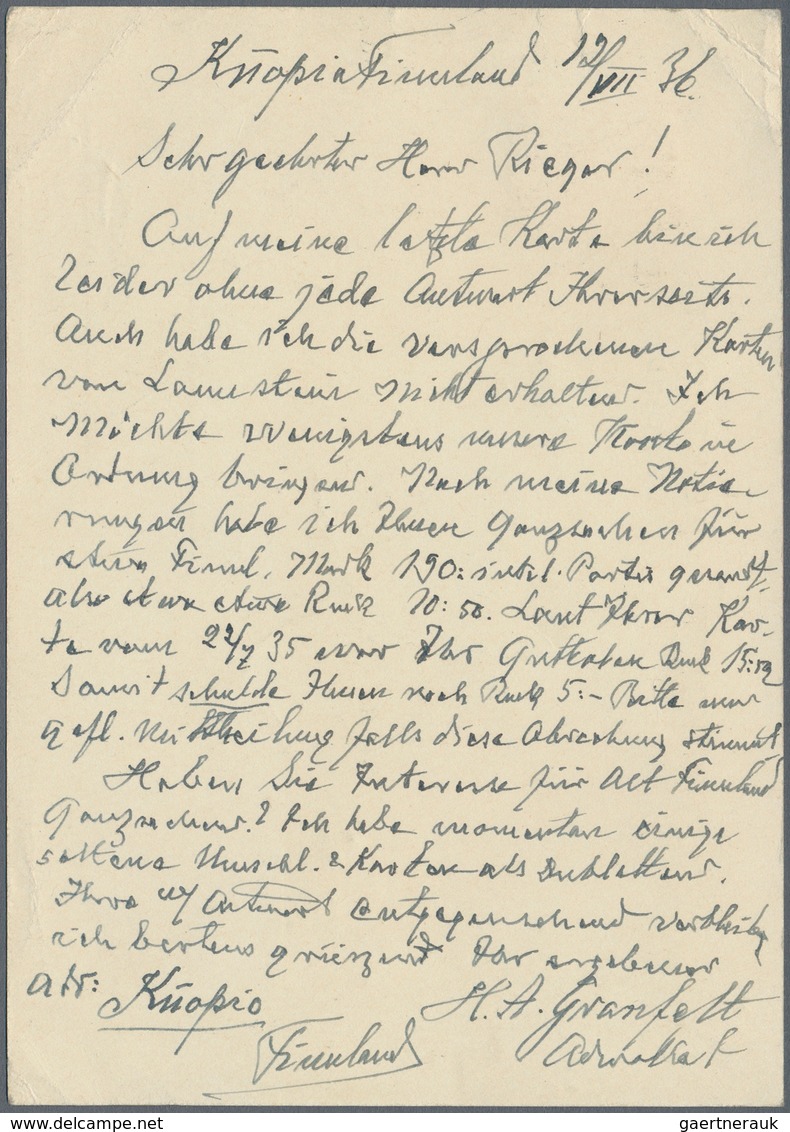 Kuopio Finnland 17/VII 36.
Sehr geehrter Herr Rieger!
Auf meine letzte Karte bin ich
leider ohne jede Antwort Ihrerseits.
Auch habe ich die versprochenen Karten
von Lauustein nicht erhalten. Ich
möchte wenigstens unsere Konto in
Ordnung bringen. Nach meine Notie-
rungen habe ich Ihnen Ganzsachen für
etwa Finnl. Mark 190: inkl. Porto gesandt,
also etwa Rmk 10:50. Laut Ihrer Kar-
te vom 22/X 35 war Ihr Guthaben Rmk 15:50
Somit schulde Ihnen noch Rmk 5:- Bitte um
gefl. Mittheilung falls diese Abrechnung stimmt.
Haben Sie Interesse für Alt Finnland
Ganzsachen? Ich habe momentan einige
seltene Umschl. & Karten als Dubletten.
Ihre Antwort entgegensehend verbleibe
ich bestens grüszend Ihr ergebener
Adr: Kuopio H. A. Granfelt
Finnland Advokat
gaertnerauk